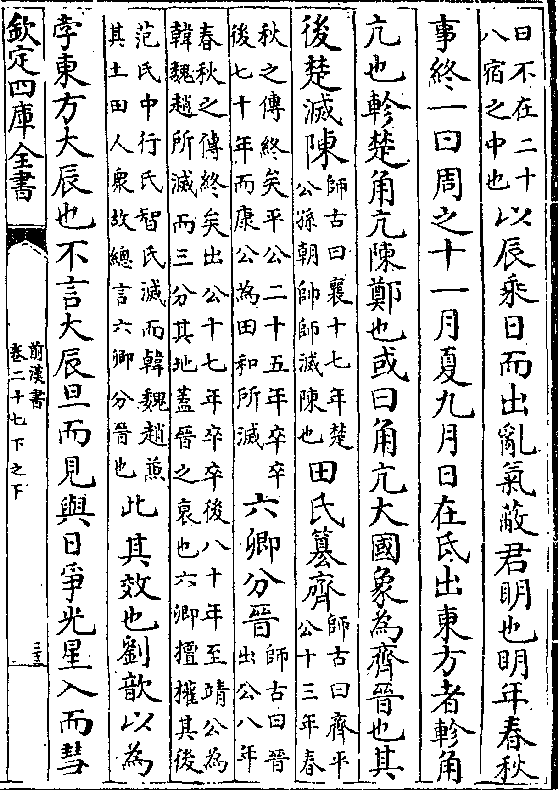 日不在二十八宿之中也以辰乘日而出亂氣蔽君明也明年春秋
事終一曰周之十一月夏九月日在氐出東方者軫角
亢也軫楚角亢陳鄭也或曰角亢大國象為齊晉也其
後楚滅陳師古曰襄十七年楚公孫朝帥師滅陳也田氏篡齊師古曰齊平公十三年春
秋之傳終矣平公二十五年卒卒後七十年而康公為田和所滅六卿分晉師古曰晉出公八年
春秋之傳終矣出公十七年卒卒後八十年至靖公為韓魏趙所滅而三分其地蓋晉之衰也六卿擅權其後
范氏中行氏智氏滅而韓魏趙兼其土田人衆故總言六卿分晉也此其效也劉歆以為
孛東方大辰也不言大辰旦而見與日爭光星入而彗
欽定四庫全書
前漢書
卷二十七下之下